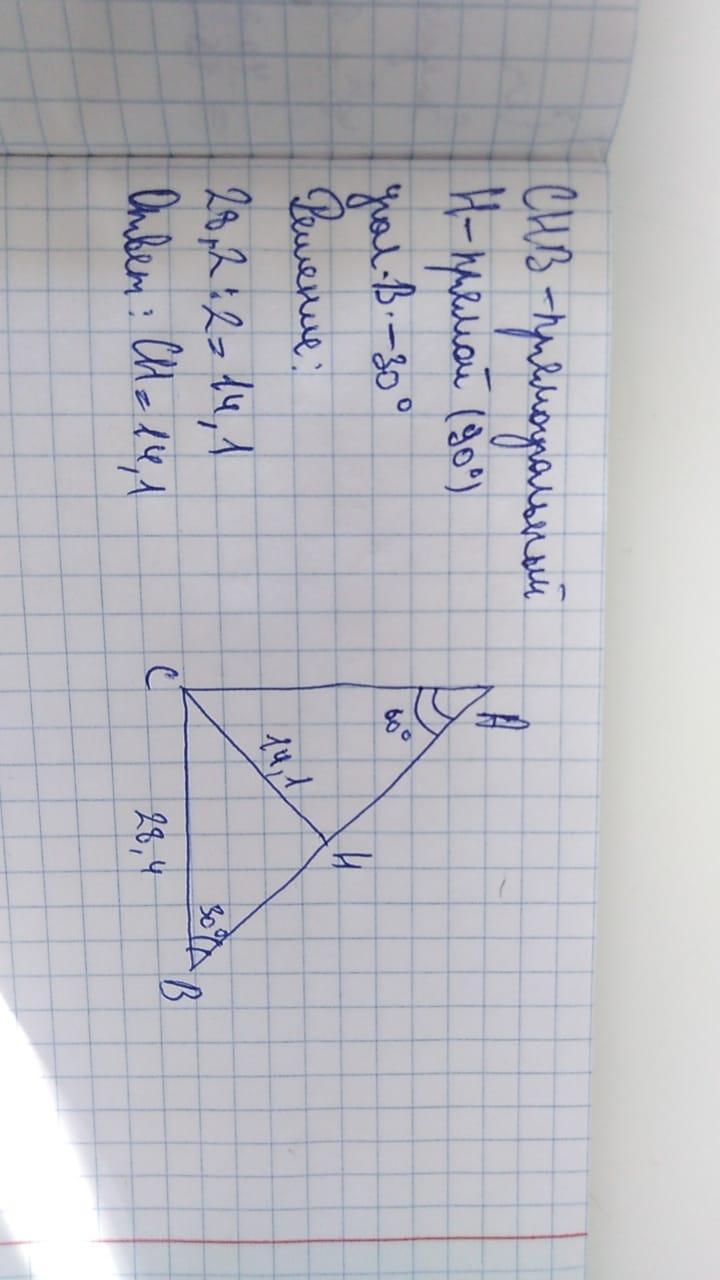 CHB – прямоугольный
H – прямой (90°)
угол. B. – 30°
Решение:
28,2 : 2 = 14,1
Ответ: CH = 14,1
A
60°
C
14,1
H
28,4
30°
B